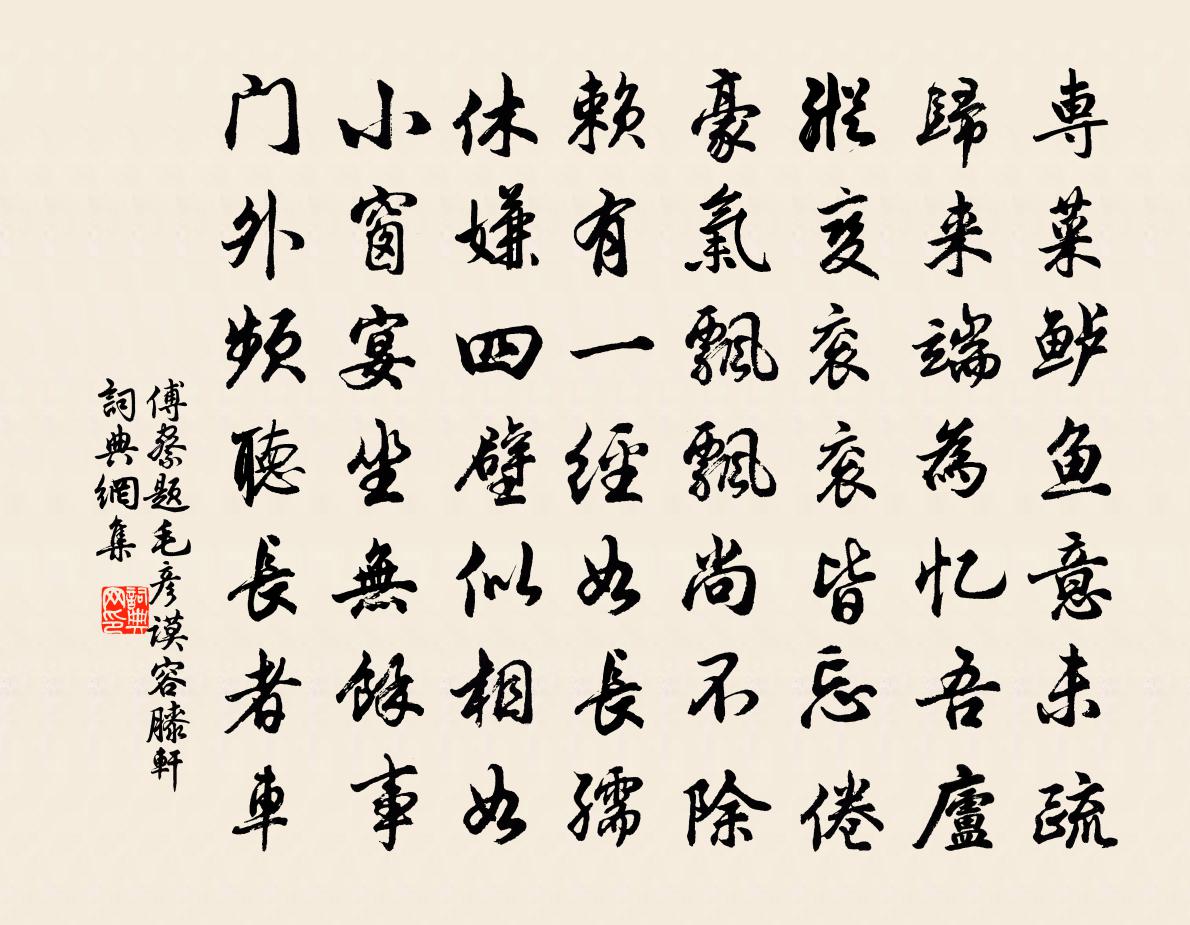 専菜鲈鱼意未疏
歸来端為忆吾廬
縱变衮衮皆忘倦
豪氣飄飄尚不除
赖有一經如長孺
休嫌四壁似相如
小窗宴坐無餘事
门外频聽長者車
傅察题毛彦谟容膝軒
詞典網集
詞典网印